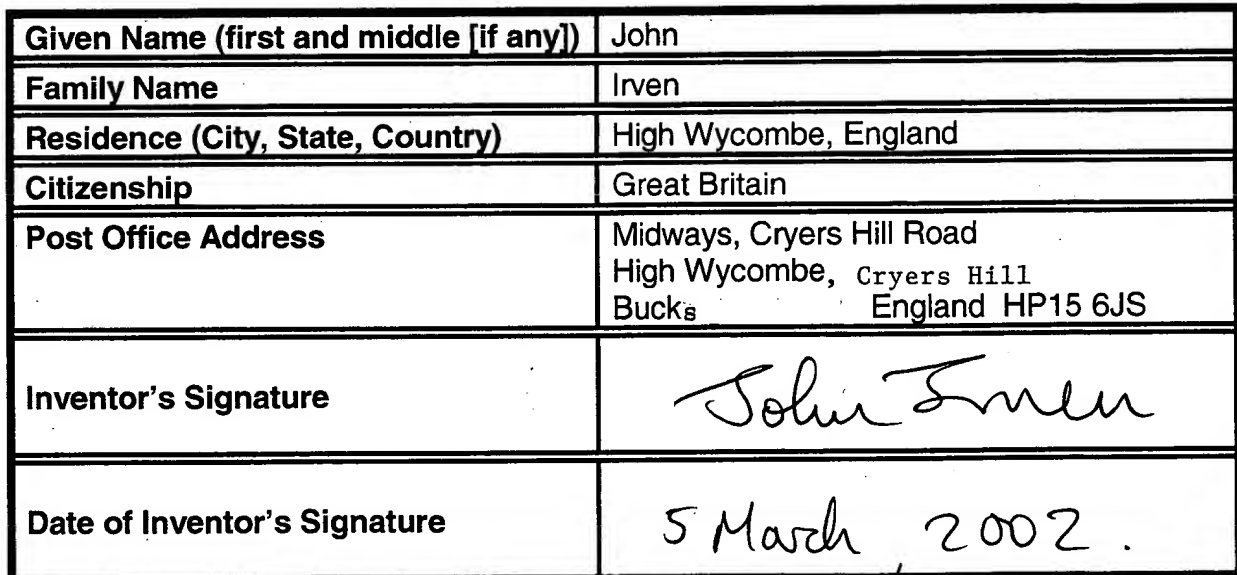 Given Name (first and middle [if any]) John
Family Name Irven
Residence (City, State, Country) High Wycombe, England
Citizenship Great Britain
Post Office Address Midways, Cryers Hill Road
High Wycombe, Cryers Hill
Bucks England HP15 6JS
Inventor's Signature John Irven
Date of Inventor's Signature 5 March, 2002.